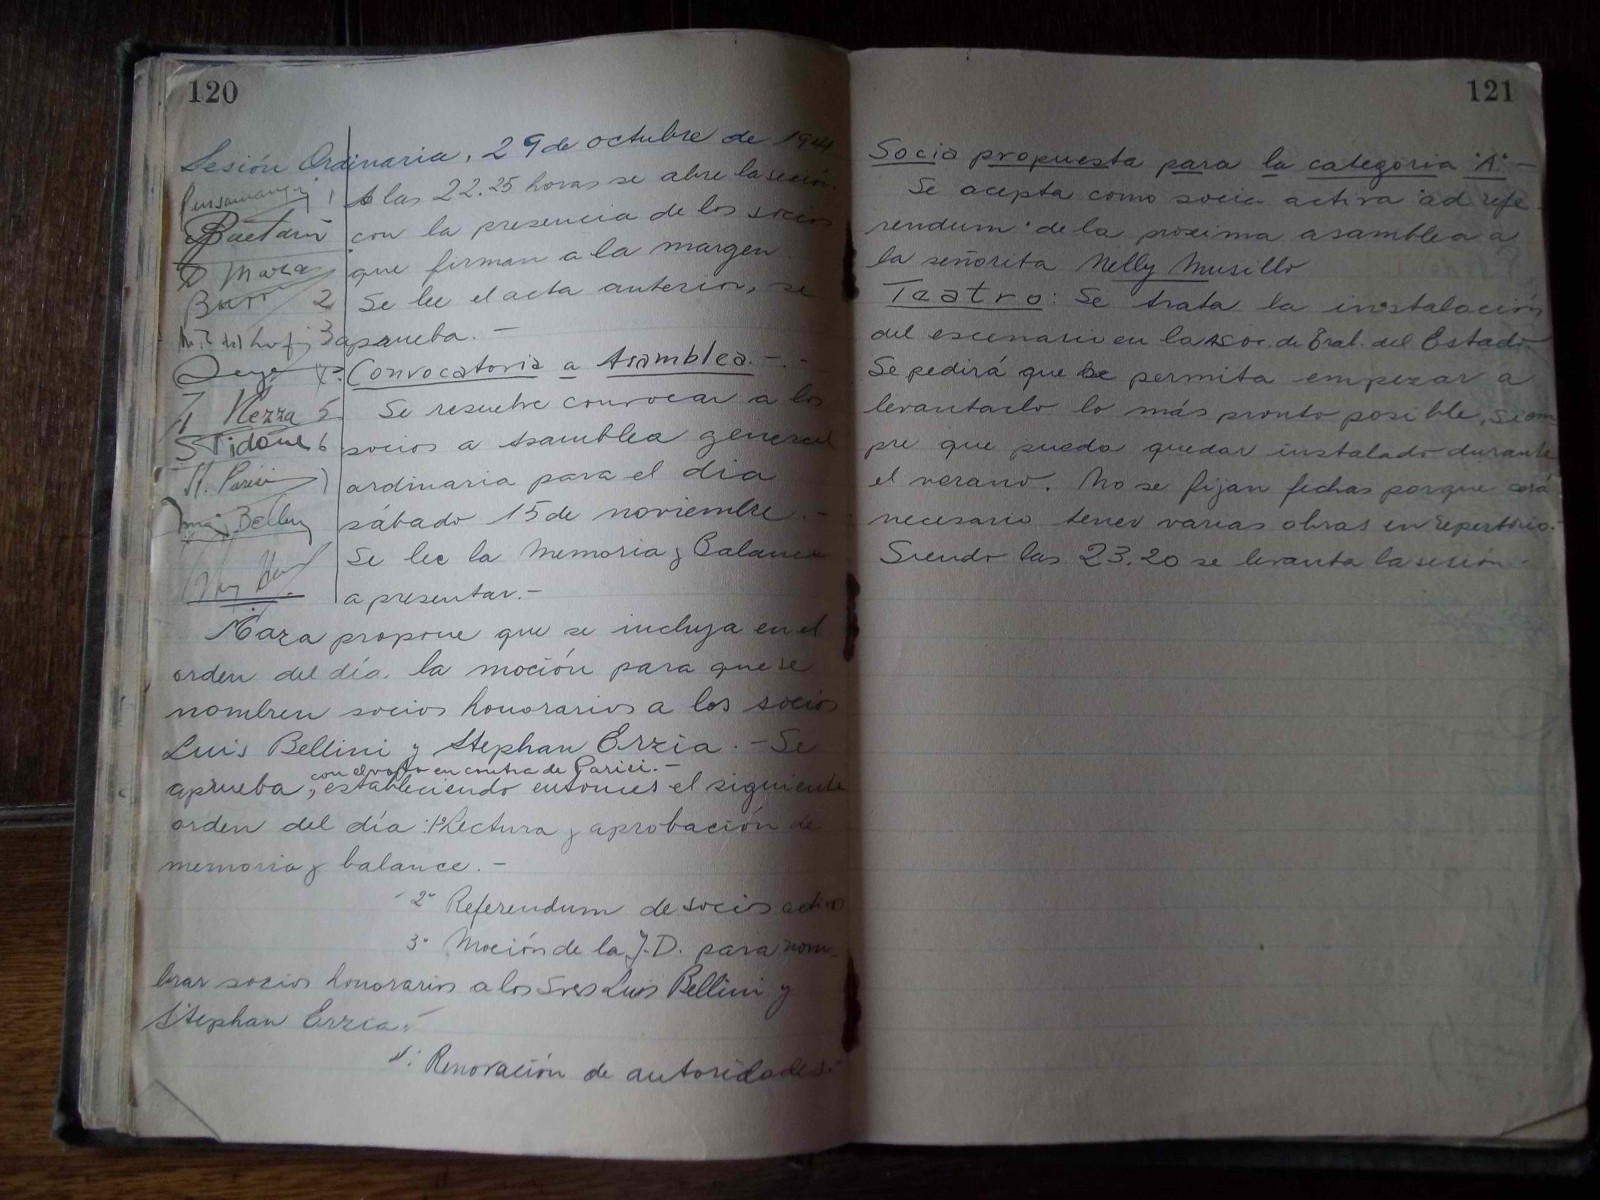 120
Sesión Ordinaria, 29 de octubre de 1941
1 A las 22.25 horas se abre la sesión
Baetani con la presencia de los socios
Maza que firman a la margen
2 Se lee el acta anterior, se
3 aprueba.-
Convocatoria a Asamblea.-.-
5 Se resuelve convocar a los
S Tidone 6 socios a Asamblea general
H. Parisi ordinaria para el dia
sábado 15 de noviembre.-
Se lee la Memoria y Balance
a presentar.-
Maza propone que se incluya en el
orden del día. la moción para que se
nombren socios honorarios a los socios
Luis Bellini y Stephan Erzia.- Se
con el voto en contra de Parisi.-
aprueba, estableciendo entonces el siguiente
orden del día: 1º Lectura y aprobación de
memoria y balance.-
2º Referendum de socios activos
3º Moción de la J.D. para nom-
brar socios honorarios a los Sres Luis Bellini y
Stephan Erzia.-
4º Renovación de autoridades.-
121
Socia propuesta para la categoria "A".-
Se acepta como socia activa "ad refe
rendum" de la proxima asamblea a
la señorita Nelly Musillo
Teatro: Se trata la instalación
del escenario en la Asoc. de Trab. del Estado
Se pedirá que se permita empezar a
levantarlo lo más pronto posible, siem
pre que pueda quedar instalado durante
el verano. No se fijan fechas porque será
necesario tener varias obras en repertorio.-
Siendo las 23.20 se levanta la sesión.-